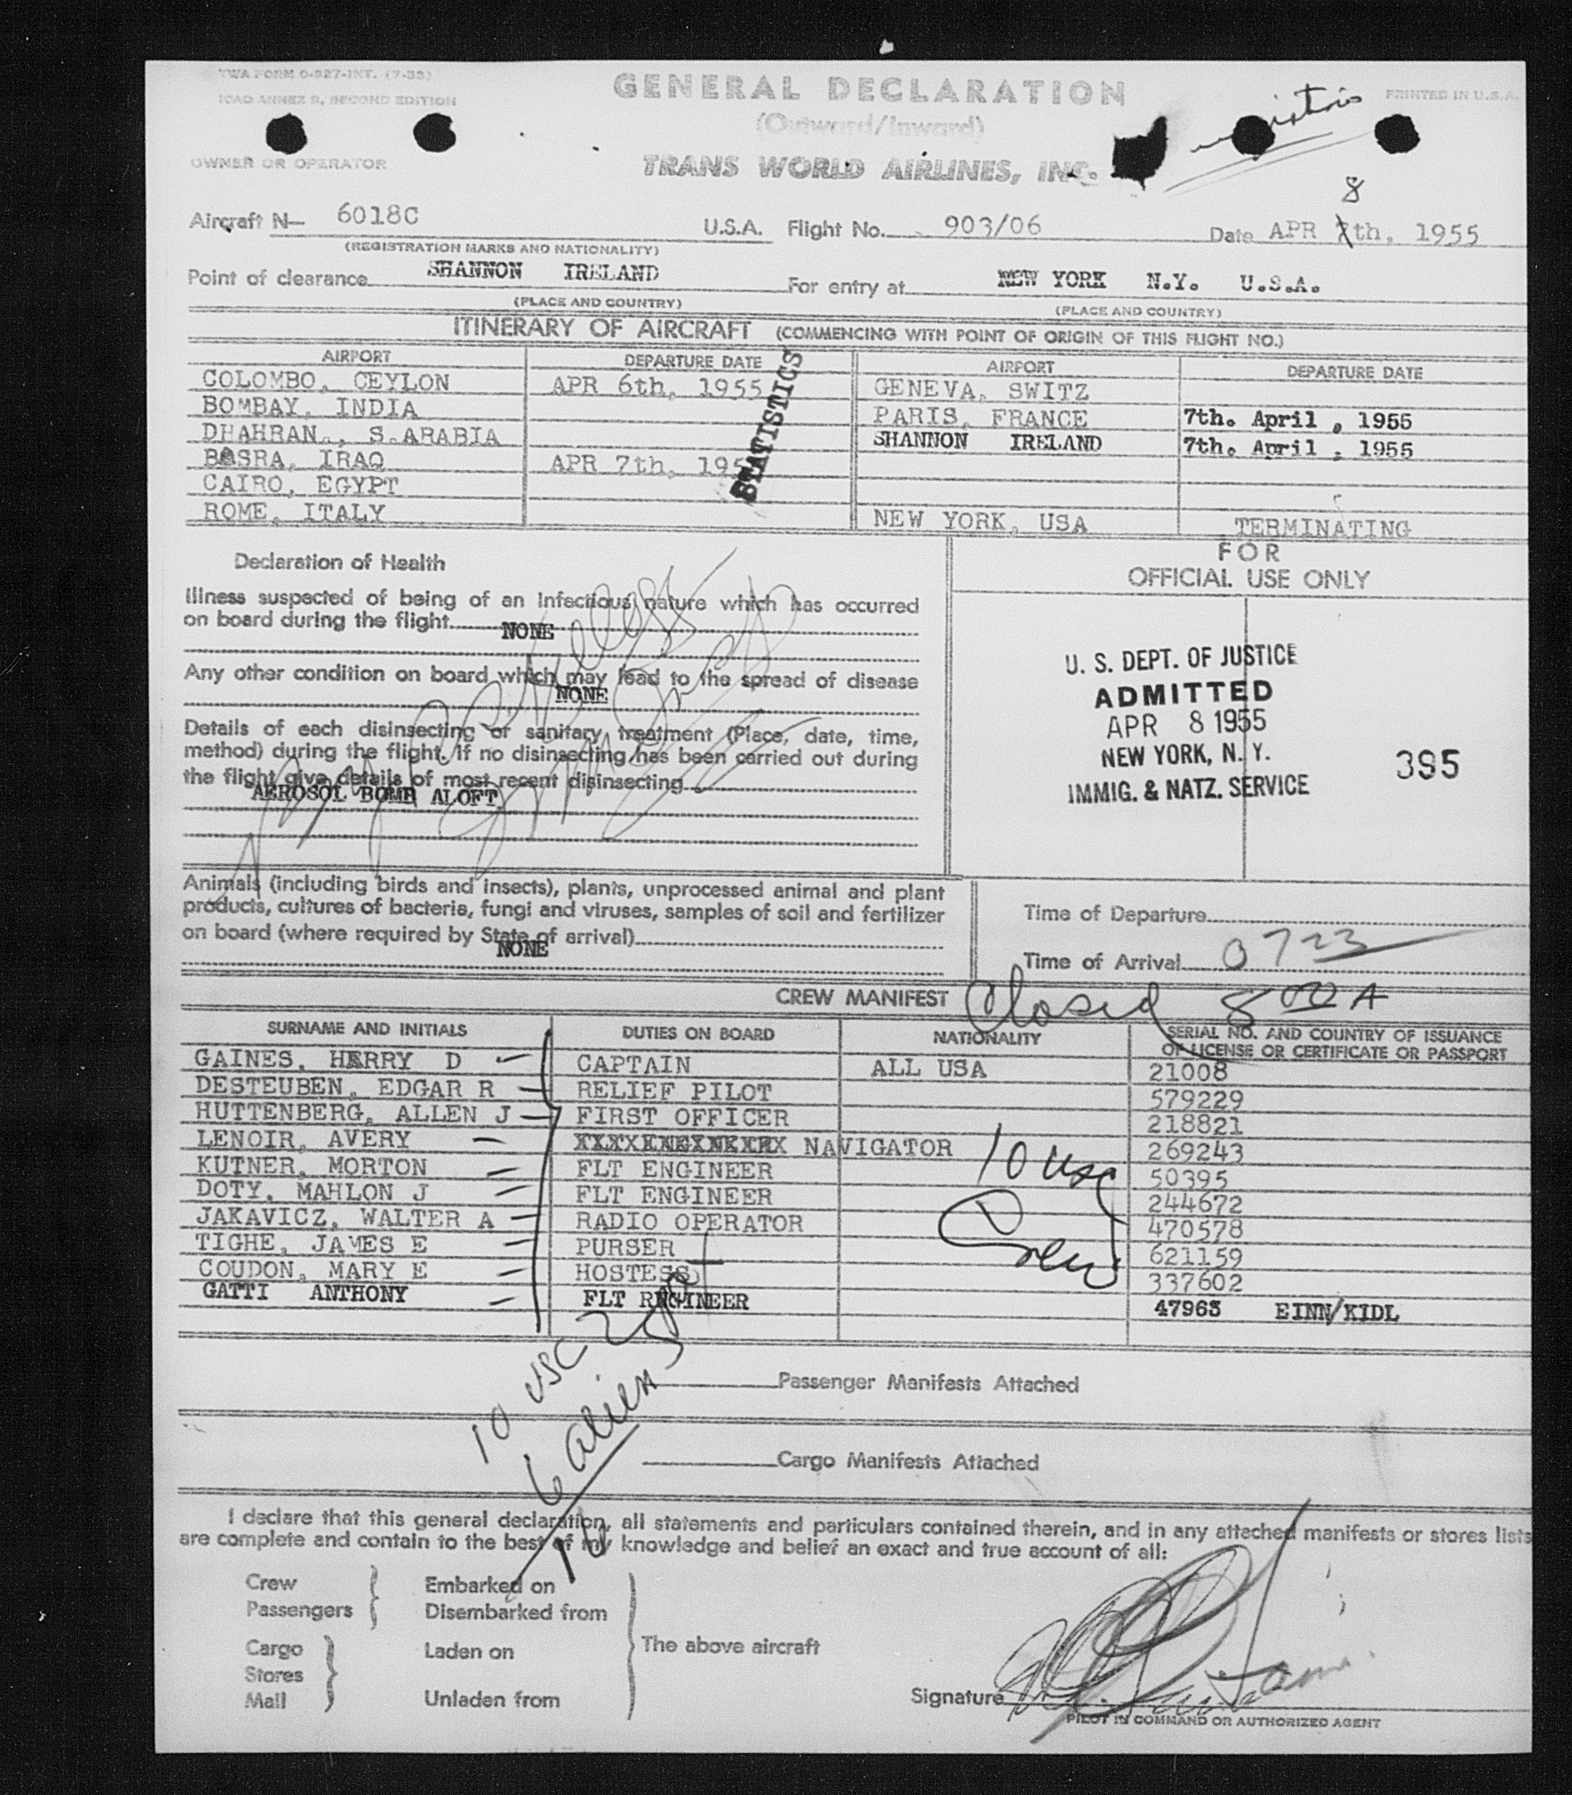 TWA FORM O-927-INT. (7-53)
ICAO ANNEX 9, SECOND EDITION
PRINTED IN U.S.A.
GENERAL DECLARATION
(Outward/Inward)
OWNER OR OPERATOR
TRANS WORLD AIRLINES, INC.
8
Aircraft N— 6018C U.S.A. Flight No. 903/06 Date APR 7th, 1955
(REGISTRATION MARKS AND NATIONALITY)
Point of clearance SHANNON IRELAND For entry at NEW YORK N.Y. U.S.A.
(PLACE AND COUNTRY) (PLACE AND COUNTRY)
ITINERARY OF AIRCRAFT (COMMENCING WITH POINT OF ORIGIN OF THIS FLIGHT NO.)
AIRPORT DEPARTURE DATE AIRPORT DEPARTURE DATE
COLOMBO, CEYLON APR 6th, 1955 GENEVA, SWITZ
BOMBAY, INDIA PARIS, FRANCE 7th. April , 1955
DHAHRAN., S.ARABIA SHANNON IRELAND 7th. April , 1955
BASRA, IRAQ APR 7th, 195
CAIRO, EGYPT
ROME, ITALY NEW YORK, USA TERMINATING
STATISTICS
Declaration of Health
Illness suspected of being of an infectious nature which has occurred
on board during the flight NONE
Any other condition on board which may lead to the spread of disease
NONE
Details of each disinsecting or sanitary treatment (Place, date, time,
method) during the flight. If no disinsecting has been carried out during
the flight give details of most recent disinsecting
AEROSOL BOMB ALOFT
FOR
OFFICIAL USE ONLY
U. S. DEPT. OF JUSTICE
ADMITTED
APR 8 1955
NEW YORK, N. Y.
IMMIG. & NATZ. SERVICE
395
Animals (including birds and insects), plants, unprocessed animal and plant
products, cultures of bacteria, fungi and viruses, samples of soil and fertilizer
on board (where required by State of arrival)
NONE
Time of Departure
Time of Arrival 0723
Closed 8 00 A
CREW MANIFEST
SURNAME AND INITIALS DUTIES ON BOARD NATIONALITY SERIAL NO. AND COUNTRY OF ISSUANCE
OF LICENSE OR CERTIFICATE OR PASSPORT
GAINES, HARRY D CAPTAIN ALL USA 21008
DESTEUBEN, EDGAR R RELIEF PILOT 579229
HUTTENBERG, ALLEN J FIRST OFFICER 218821
LENOIR, AVERY NAVIGATOR 269243
KUTNER, MORTON FLT ENGINEER 50395
DOTY, MAHLON J FLT ENGINEER 244672
JAKAVICZ, WALTER A RADIO OPERATOR 470578
TIGHE, JAMES E PURSER 621159
COUDON, MARY E HOSTESS 337602
GATTI ANTHONY FLT ENGINEER 47963 EINN/KIDL
10 USC
Crew
10 USC
6 alien
Passenger Manifests Attached
Cargo Manifests Attached
I declare that this general declaration, all statements and particulars contained therein, and in any attached manifests or stores lists
are complete and contain to the best of my knowledge and belief an exact and true account of all:
Crew Embarked on
Passengers Disembarked from
Cargo Laden on The above aircraft
Stores
Mail Unladen from
Signature
PILOT IN COMMAND OR AUTHORIZED AGENT